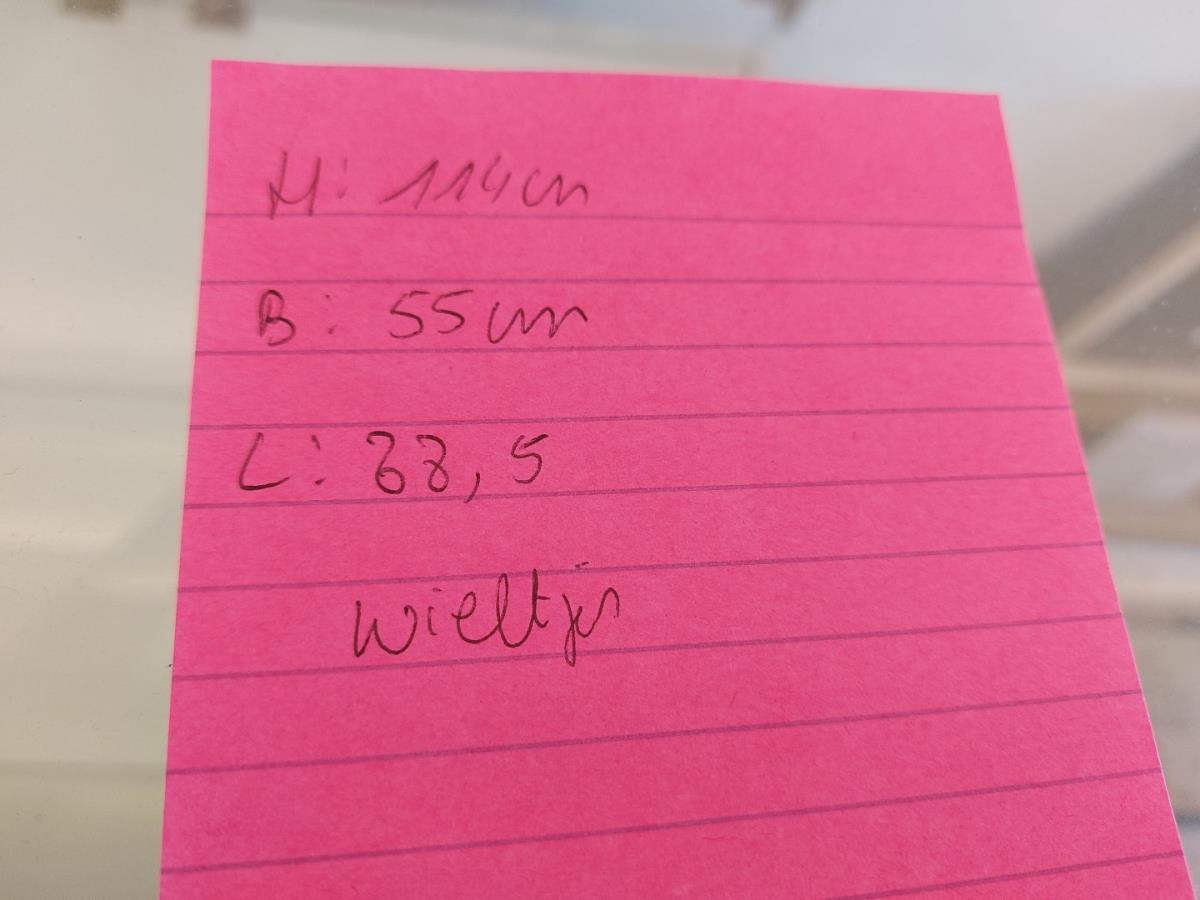 H: 114cm
B: 55cm
L: 88,5
Wieltjes